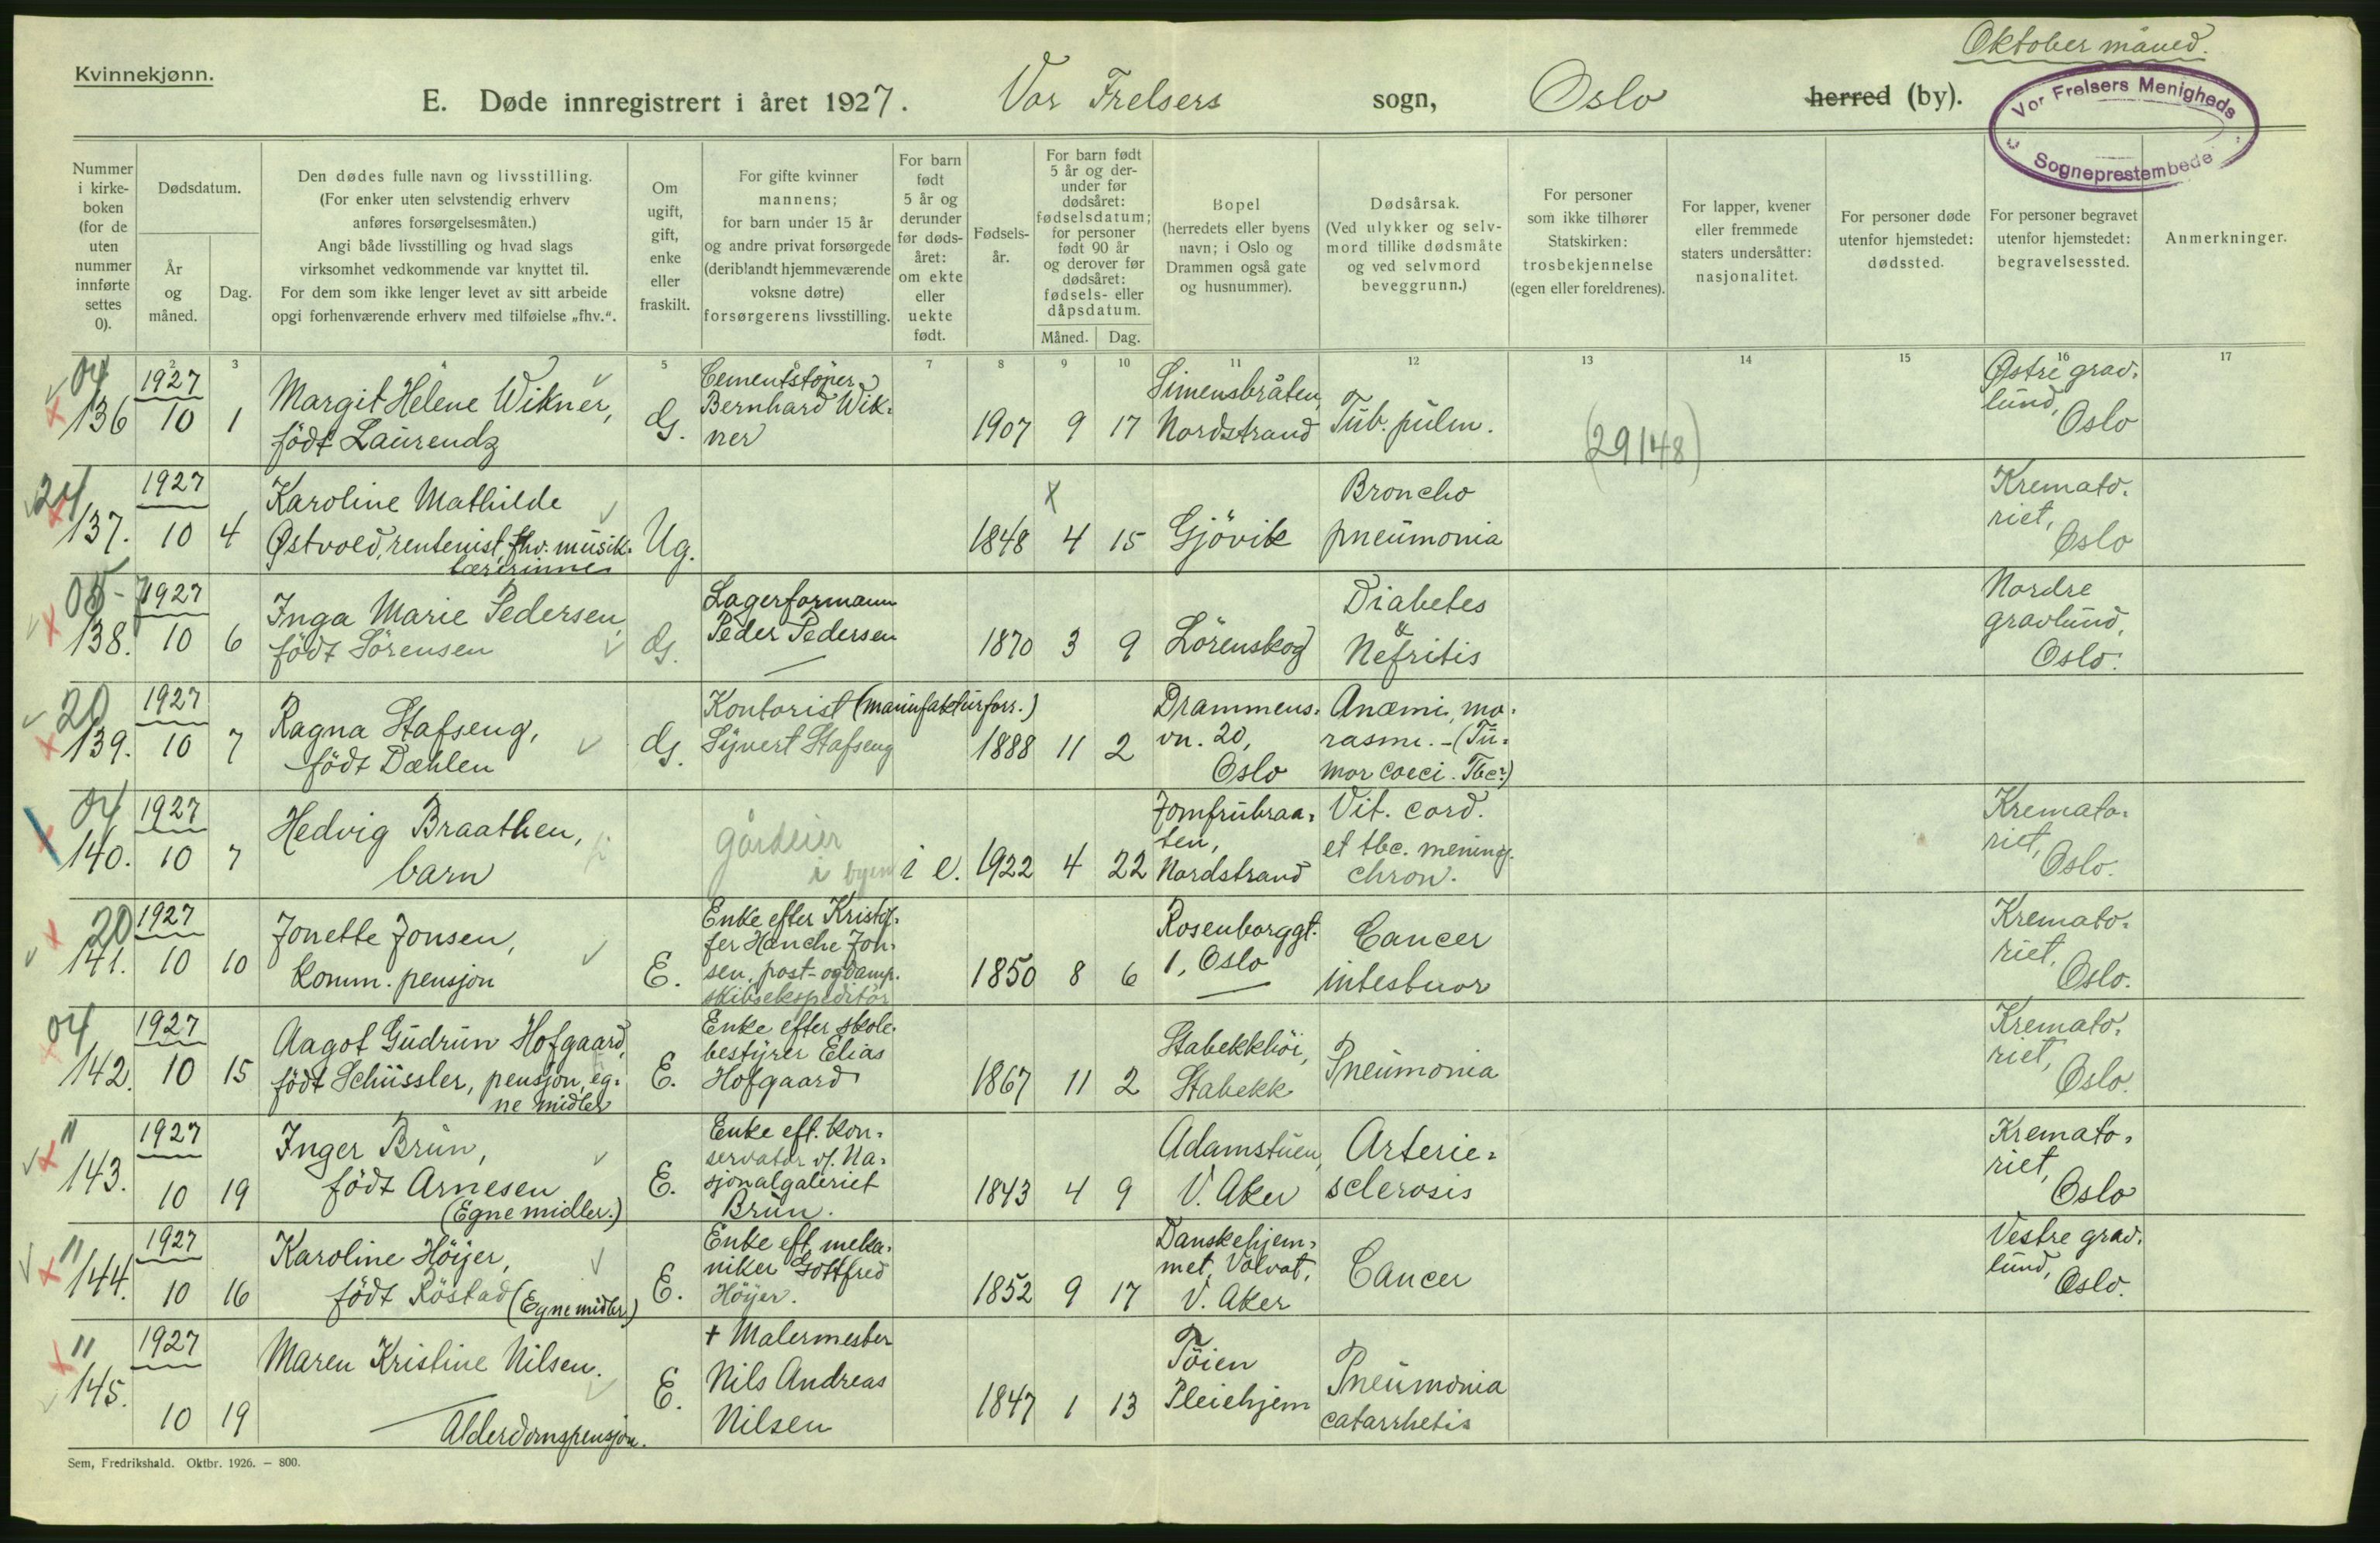 Oktober måned.
Kvinnekjønn.
E. Døde innregistrert i året 1927. Vor Frelsers sogn, Oslo herred (by).
Vor Frelsers Menigheds
Sogneprestembede
Nummer
i kirke-
boken
(for de
uten
nummer
innførte
settes
0).
Dødsdatum.
År
og
måned.
Dag.
Den dødes fulle navn og livsstilling.
(For enker uten selvstendig erhverv
anføres forsørgelsesmåten.)
Angi både livsstilling og hvad slags
virksomhet vedkommende var knyttet til.
For dem som ikke lenger levet av sitt arbeide
opgi forhenværende erhverv med tilføielse „fhv.“.
Om
ugift,
gift,
enke
eller
fraskilt.
For gifte kvinner
mannens;
for barn under 15 år
og andre privat forsørgede
(deriblandt hjemmeværende
voksne døtre)
forsørgerens livsstilling.
For barn
født
5 år og
derunder
før døds-
året:
om ekte
eller
uekte
født.
Fødsels-
år.
For barn født
5 år og der-
under før
dødsåret:
fødselsdatum;
for personer
født 90 år
og derover før
dødsåret:
fødsels- eller
dåpsdatum.
Måned. Dag.
Bopel
(herredets eller byens
navn; i Oslo og
Drammen også gate
og husnummer).
Dødsårsak.
(Ved ulykker og selv-
mord tillike dødsmåte
og ved selvmord
beveggrunn.)
For personer
som ikke tilhører
Statskirken:
trosbekjennelse
(egen eller foreldrenes).
For lapper, kvener
eller fremmede
staters undersåtter:
nasjonalitet.
For personer døde
utenfor hjemstedet:
dødssted.
For personer begravet
utenfor hjemstedet:
begravelsessted.
Anmerkninger.
2 3 4 5 7 8 9 10 11 12 13 14 15 16 17
04
136
1927
10 1
Margit Helene Wikner,
født Laurendz
G.
Cementstøper
Bernhard Wik-
ner
1907 9 17
Simensbråten,
Nordstrand
Tub. pulm.
(29148)
Østre grav-
lund,
Oslo
24
137.
1927
10 4
Karoline Mathilde
Østvold, rentenist, fhv. musik-
lærerinne
Ug.
1848 4 15
Gjövik
Broncho
pneumonia
Kremato-
riet,
Oslo
05-7
138.
1927
10 6
Inga Marie Pedersen,
født Sörensen
G.
Lagerformann
Peder Pedersen
1870 3 9
Lörenskog
Diabetes
&
Nefritis
Nordre
gravlund,
Oslo.
20
139.
1927
10 7
Ragna Stafseng,
født Dæhlen
G.
Kontorist (manufakturforr.)
Syvert Stafseng
1888 11 2
Drammens-
vn. 20,
Oslo
Anæmi, ma-
rasme. - (Tu-
mor coeci. Tbc?)
04
140.
1927
10 7
Hedvig Braathen,
barn
gårdeier
i byen
i e.
1922 4 22
Jomfrubraa-
ten,
Nordstrand
Vit. cord.
et tbc. mening.
chron.
Kremato-
riet,
Oslo.
20
141.
1927
10 10
Jonette Jonsen,
Komm. pensjon
E.
Enke efter Kristof-
fer Hanche Jon-
sen, post- og damp-
skibsekspeditör
1850 8 6
Rosenborggt.
1, Oslo
Cancer
intestinor
Kremato-
riet,
Oslo.
04
142.
1927
10 15
Aagot Gudrun Hofgaard,
født Schüssler, pensjon, eg-
ne midler
E.
Enke efter skole-
bestyrer Elias
Hofgaard
1867 11 2
Stabekkhöi,
Stabekk
Pneumonia
Kremato-
riet,
Oslo.
11
143.
1927
10 19
Inger Brun,
født Arnesen
(Egne midler.)
E.
Enke eft. kon-
servator v/ Na-
sjonalgaleriet
Brun.
1843 4 9
Adamstuen,
V. Aker
Arterie-
sclerosis
Kremato-
riet,
Oslo
11
144.
1927
10 16
Karoline Höijer,
født Röstad (Egne midler)
E.
Enke eft. meka-
niker Gottfred
Höijer.
1852 9 17
Danskehjem-
met, Volvat,
V. Aker
Cancer
Vestre grav-
lund,
Oslo.
11
145.
1927
10 19
Maren Kristine Nilsen.
Alderdomspensjon.
E.
+ Malermester
Nils Andreas
Nilsen
1847 1 13
Töien
Pleiehjem
Pneumonia
catarrhetis
Sem, Fredrikshald. Oktbr. 1926. – 800.